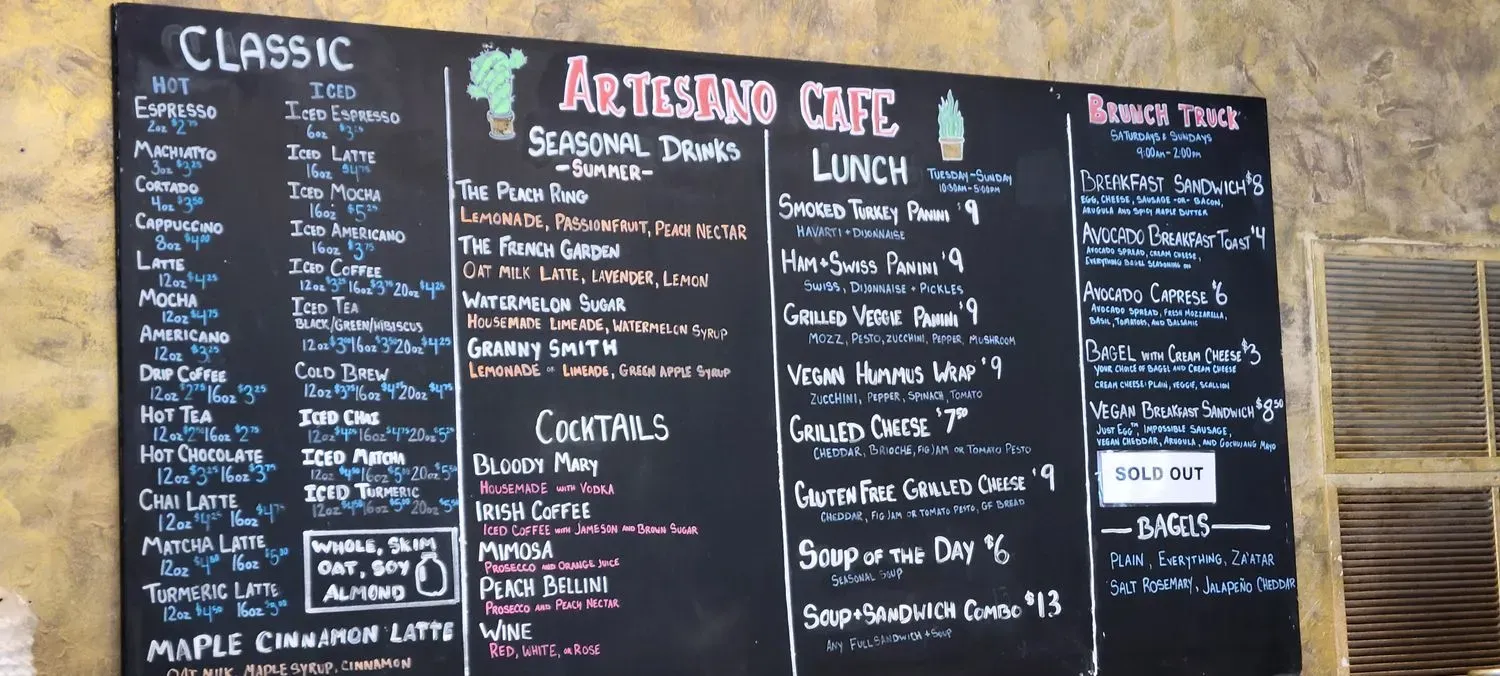 CLASSIC
HOT
ESPRESSO
2oz $2.75
MACHIATTO
3oz $3.25
CORTADO
4oz $3.50
CAPPUCCINO
8oz $4.00
LATTE
12oz $4.25
MOCHA
12oz $4.75
AMERICANO
12oz $3.25
DRIP COFFEE
12oz $2.75 16oz $3.25
HOT TEA
12oz $2.50 16oz $2.75
HOT CHOCOLATE
12oz $3.25 16oz $3.75
CHAI LATTE
12oz $4.25 16oz $4.75
MATCHA LATTE
12oz $4.50 16oz $5.00
TURMERIC LATTE
12oz $4.50 16oz $5.00
MAPLE CINNAMON LATTE
OAT MILK, MAPLE SYRUP, CINNAMON
ICED
ICED ESPRESSO
6oz
ICED LATTE
16oz $4.75
ICED MOCHA
16oz $5.25
ICED AMERICANO
16oz $3.75
ICED COFFEE
12oz $3.25 16oz $3.75 20oz $4.25
ICED TEA
BLACK/GREEN/HIBISCUS
12oz $3.00 16oz $3.50 20oz $4.25
COLD BREW
12oz $3.75 16oz $4.25 20oz $4.75
ICED CHAI
12oz $4.25 16oz $4.75 20oz $5.25
ICED MATCHA
12oz $4.50 16oz $5.00 20oz $5.50
ICED TURMERIC
12oz $4.50 16oz $5.00 20oz $5.50
WHOLE, SKIM
OAT, SOY
ALMOND
ARTESANO CAFE
SEASONAL DRINKS
-SUMMER-
THE PEACH RING
LEMONADE, PASSIONFRUIT, PEACH NECTAR
THE FRENCH GARDEN
OAT MILK LATTE, LAVENDER, LEMON
WATERMELON SUGAR
HOUSEMADE LIMEADE, WATERMELON SYRUP
GRANNY SMITH
LEMONADE OR LIMEADE, GREEN APPLE SYRUP
COCKTAILS
BLOODY MARY
HOUSEMADE WITH VODKA
IRISH COFFEE
ICED COFFEE WITH JAMESON AND BROWN SUGAR
MIMOSA
PROSECCO AND ORANGE JUICE
PEACH BELLINI
PROSECCO AND PEACH NECTAR
WINE
RED, WHITE, OR ROSE
LUNCH
TUESDAY-SUNDAY
10:30AM-5:00PM
SMOKED TURKEY PANINI $9
HAVARTI + DIJONNAISE
HAM+SWISS PANINI $9
SWISS, DIJONNAISE + PICKLES
GRILLED VEGGIE PANINI $9
MOZZ, PESTO, ZUCCHINI, PEPPER, MUSHROOM
VEGAN HUMMUS WRAP $9
ZUCCHINI, PEPPER, SPINACH, TOMATO
GRILLED CHEESE $7.50
CHEDDAR, BRIOCHE, FIG JAM OR TOMATO PESTO
GLUTEN FREE GRILLED CHEESE $9
CHEDDAR, FIG JAM OR TOMATO PESTO, GF BREAD
SOUP OF THE DAY $6
SEASONAL SOUP
SOUP+SANDWICH COMBO $13
ANY FULL SANDWICH + SOUP
BRUNCH TRUCK
SATURDAYS & SUNDAYS
9:00AM-2:00PM
BREAKFAST SANDWICH $8
EGG, CHEESE, SAUSAGE -OR- BACON,
ARUGULA AND SPICY MAPLE BUTTER
AVOCADO BREAKFAST TOAST $4
AVOCADO SPREAD, CREAM CHEESE,
EVERYTHING BAGEL SEASONING
AVOCADO CAPRESE $6
AVOCADO SPREAD, FRESH MOZZARELLA,
BASIL, TOMATOES, AND BALSAMIC
BAGEL WITH CREAM CHEESE $3
YOUR CHOICE OF BAGEL AND CREAM CHEESE
CREAM CHEESE: PLAIN, VEGGIE, SCALLION
VEGAN BREAKFAST SANDWICH $8.50
JUST EGG™, IMPOSSIBLE SAUSAGE,
VEGAN CHEDDAR, ARUGULA, AND GOCHUJANG MAYO
SOLD OUT
BAGELS
PLAIN, EVERYTHING, ZA'ATAR
SALT ROSEMARY, JALAPEÑO CHEDDAR